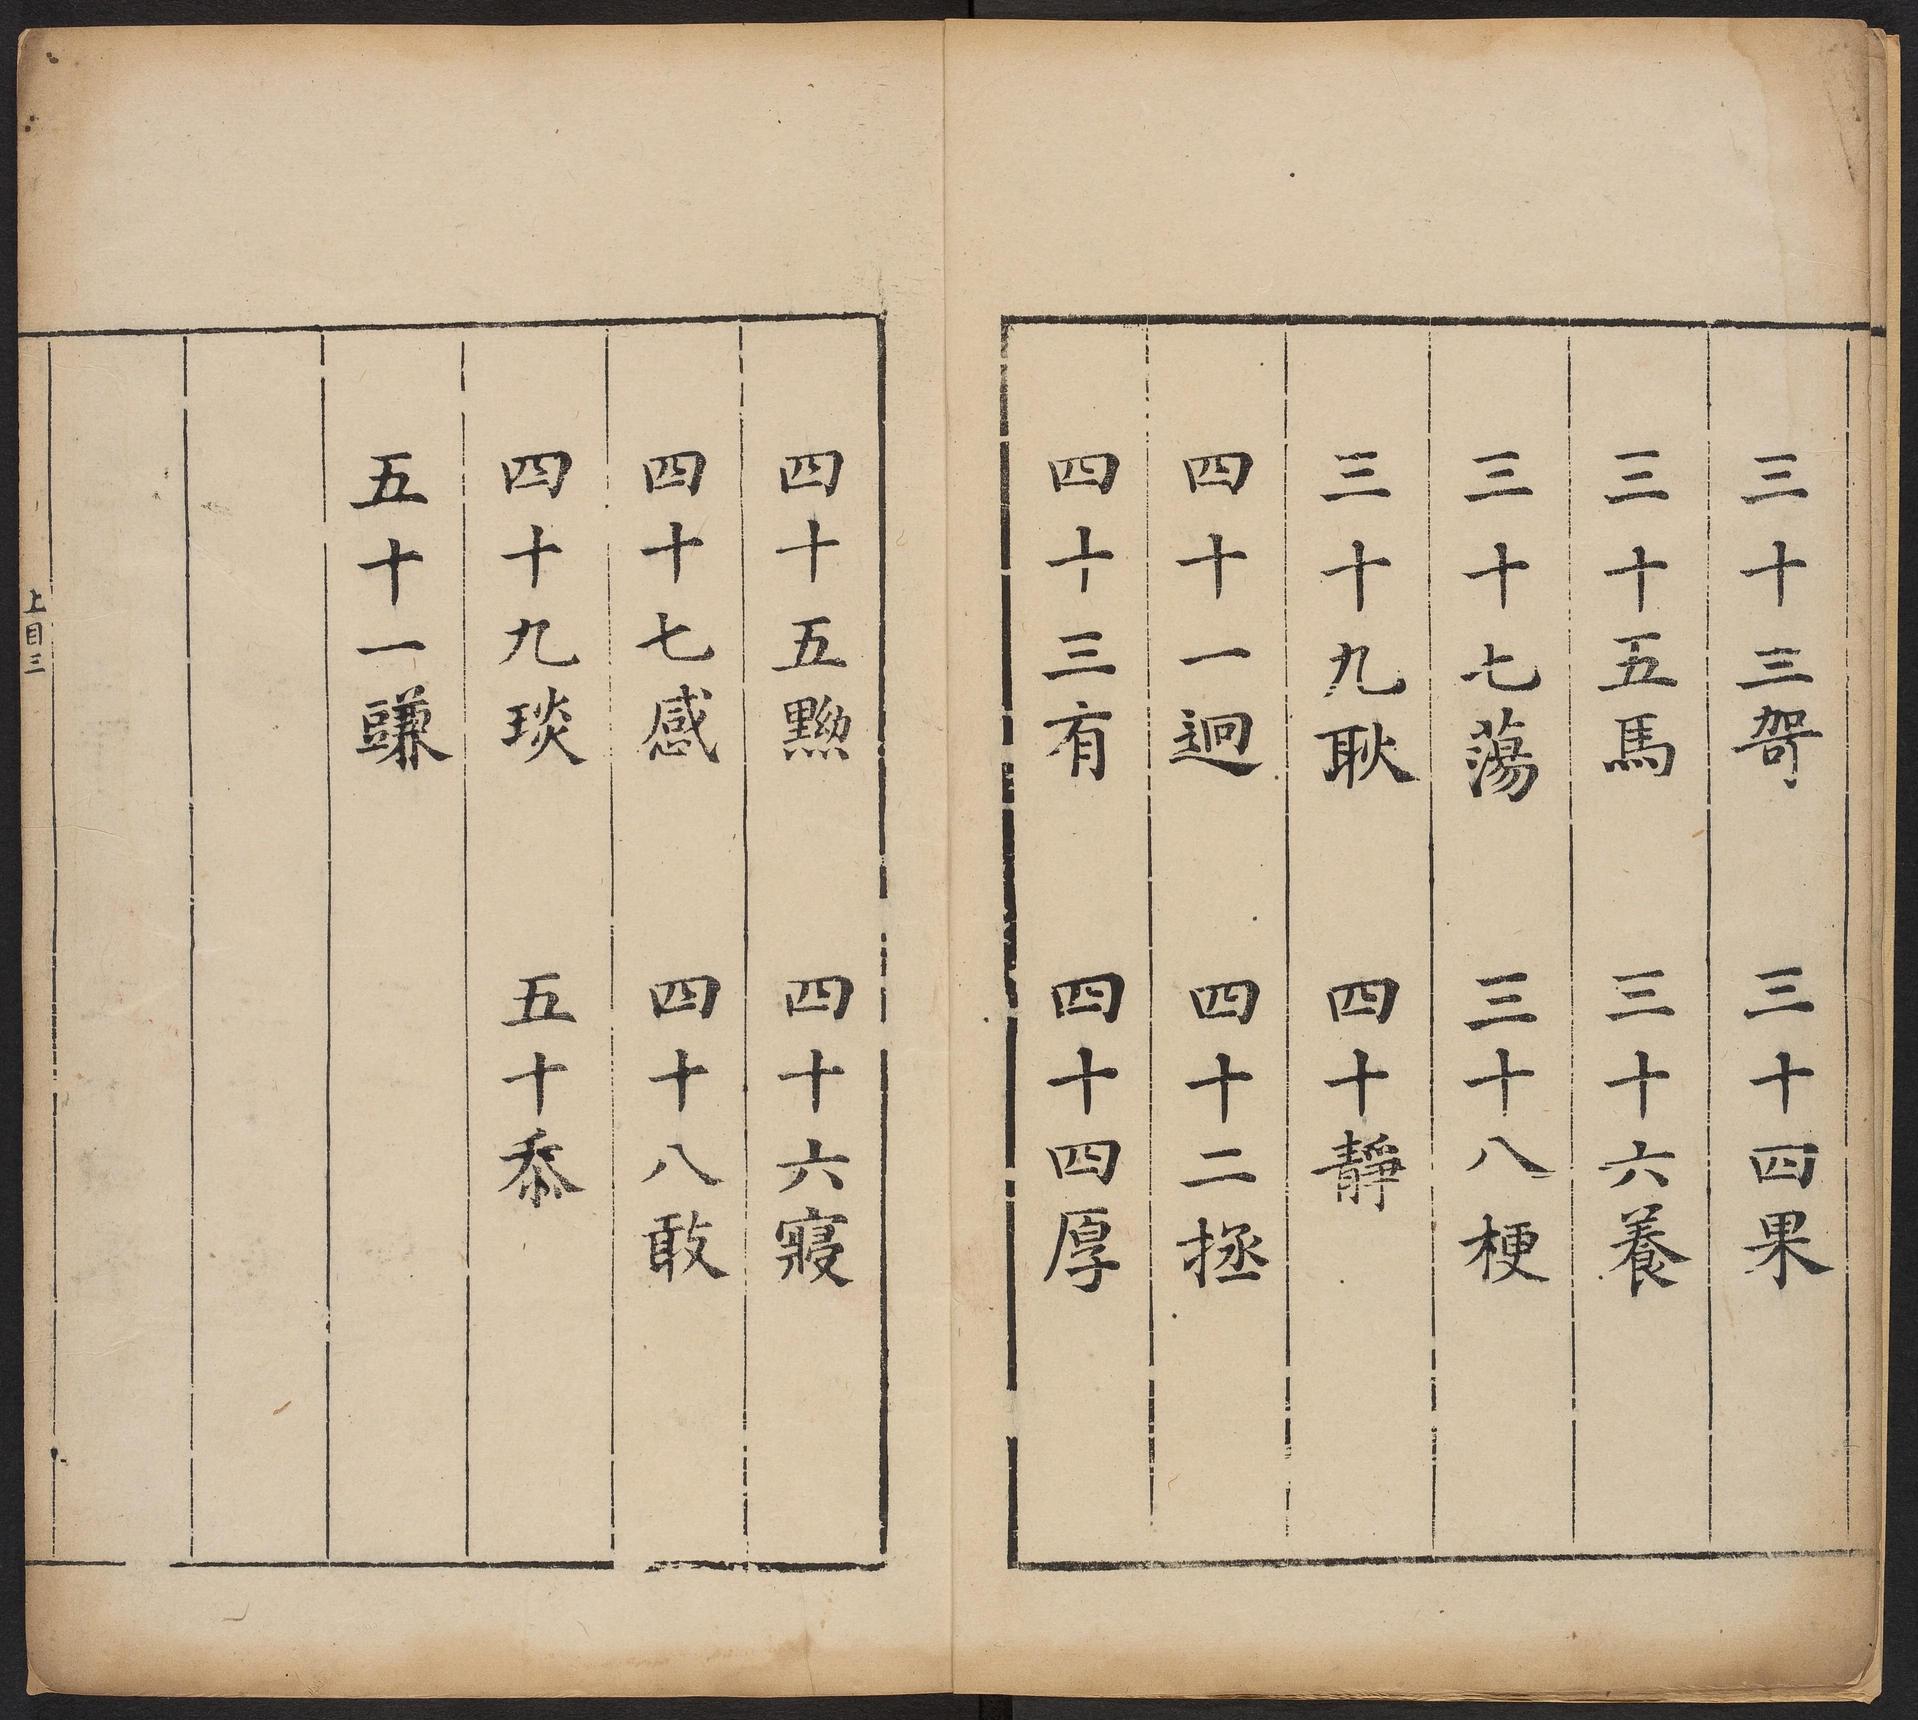 三十三哿 三十四果
三十五馬 三十六養
三十七蕩 三十八梗
三十九耿 四十靜
四十一迥 四十二拯
四十三有 四十四厚
四十五黝 四十六寢
四十七感 四十八敢
四十九琰 五十忝
五十一豏
上目三